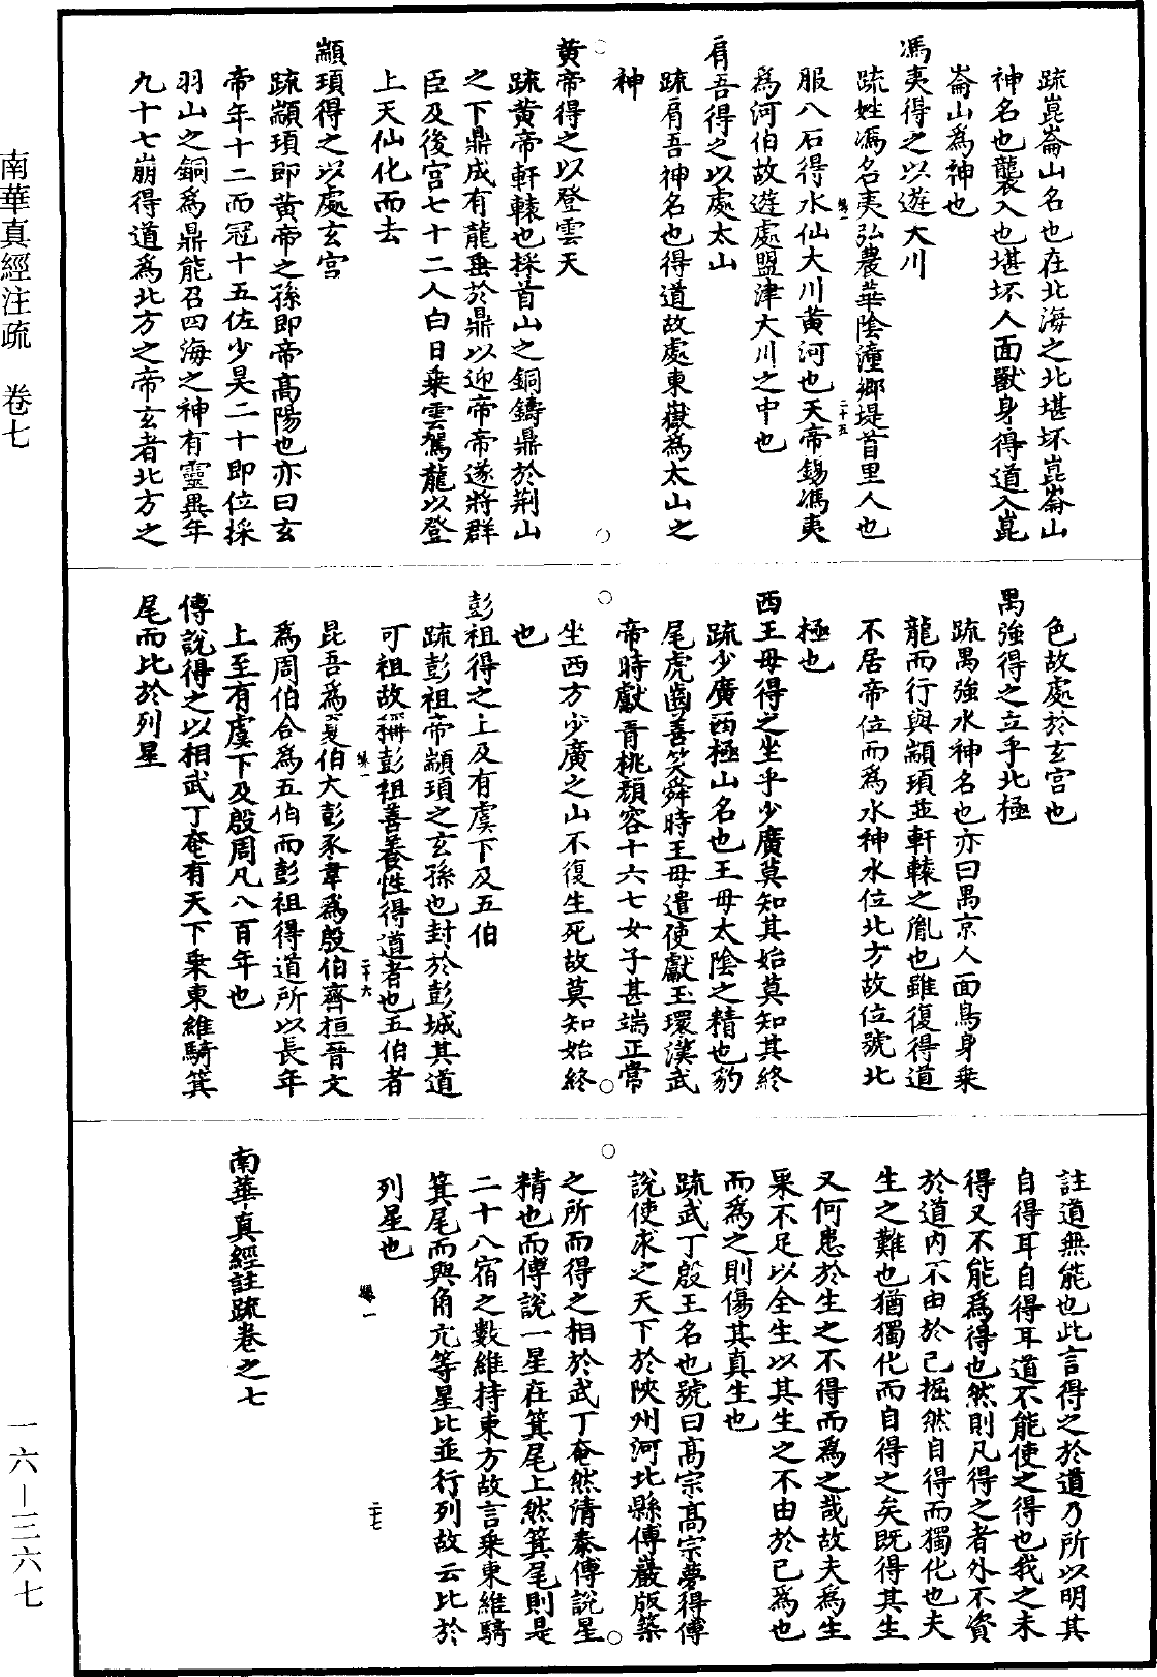 南華真經注疏　卷七
一六—三六七
疏崑崙山名也在北海之北堪坏崑崙山
神名也襲入也堪坏人面獸身得道入崑
崙山為神也
馮夷得之以遊大川
疏姓馮名夷弘農華陰潼鄉堤首里人也
服八石得水仙大川黃河也天帝錫馮夷
為河伯故遊處盟津大川之中也
肩吾得之以處太山
疏肩吾神名也得道故處東嶽為太山之
神
黃帝得之以登雲天
疏黃帝軒轅也採首山之銅鑄鼎於荆山
之下鼎成有龍垂於鼎以迎帝帝遂將群
臣及後宮七十二人白日乘雲駕龍以登
上天仙化而去
顓頊得之以處玄宮
疏顓頊即黃帝之孫即帝高陽也亦曰玄
帝年十二而冠十五佐少昊二十即位採
羽山之銅為鼎能召四海之神有靈異年
九十七崩得道為北方之帝玄者北方之
色故處於玄宮也
禺強得之立乎北極
疏禺強水神名也亦曰禺京人面鳥身乘
龍而行與顓頊並軒轅之胤也雖復得道
不居帝位而為水神水位北方故位號北
極也
西王母得之坐乎少廣莫知其始莫知其終
疏少廣西極山名也王母太陰之精也豹
尾虎齒善笑舜時王母遣使獻玉環漢武
帝時獻青桃顏容十六七女子甚端正常
坐西方少廣之山不復生死故莫知始終
也
彭祖得之上及有虞下及五伯
疏彭祖帝顓頊之玄孫也封於彭城其道
可祖故稱彭祖善養性得道者也五伯者
昆吾為夏伯大彭豕韋為殷伯齊桓晉文
為周伯合為五伯而彭祖得道所以長年
上至有虞下及殷周凡八百年也
傅說得之以相武丁奄有天下乘東維騎箕
尾而比於列星
註道無能也此言得之於道乃所以明其
自得耳自得耳道不能使之得也我之未
得又不能為得也然則凡得之者外不資
於道內不由於己掘然自得而獨化也夫
生之難也猶獨化而自得之矣既得其生
又何患於生之不得而為之哉故夫為生
果不足以全生以其生之不由於己為也
而為之則傷其真生也
疏武丁殷王名也號曰高宗高宗夢得傅
說使求之天下於陝州河北縣傅巖版築
之所而得之相於武丁奄然清泰傅說星
精也而傅說一星在箕尾上然箕尾則是
二十八宿之數維持東方故言乘東維騎
箕尾而與角亢等星比並行列故云比於
列星也
南華真經註疏卷之七
二十五
二十六
二十七